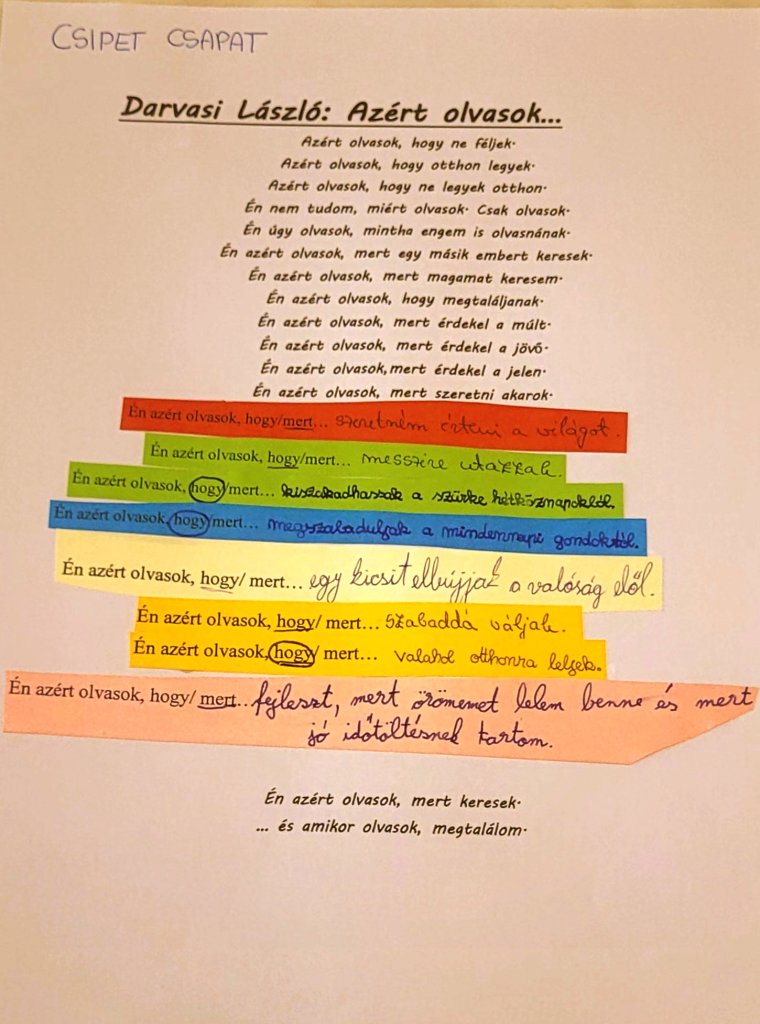 CSIPET CSAPAT
Darvasi László: Azért olvasok...
Azért olvasok, hogy ne féljek.
Azért olvasok, hogy otthon legyek.
Azért olvasok, hogy ne legyek otthon.
Én nem tudom, miért olvasok. Csak olvasok.
Én úgy olvasok, mintha engem is olvasnának.
Én azért olvasok, mert egy másik embert keresek.
Én azért olvasok, mert magamat keresem.
Én azért olvasok, hogy megtaláljanak.
Én azért olvasok, mert érdekel a múlt.
Én azért olvasok, mert érdekel a jövő.
Én azért olvasok, mert érdekel a jelen.
Én azért olvasok, mert szeretni akarok.
Én azért olvasok, hogy/mert... szeretném érteni a világot.
Én azért olvasok, hogy/mert... messzire utazzak.
Én azért olvasok, hogy/mert... kiszakadhassak a szürke hétköznapokból.
Én azért olvasok, hogy/mert... megszabaduljak a mindennapi gondoktól.
Én azért olvasok, hogy/ mert... egy kicsit elbújjak a valóság elől.
Én azért olvasok, hogy/ mert... szabaddá váljak.
Én azért olvasok, hogy/ mert... valahol otthonra leljek.
Én azért olvasok, hogy/ mert... fejleszt, mert örömemet lelem benne és mert
jó időtöltésnek tartom.
Én azért olvasok, mert keresek.
... és amikor olvasok, megtalálom.